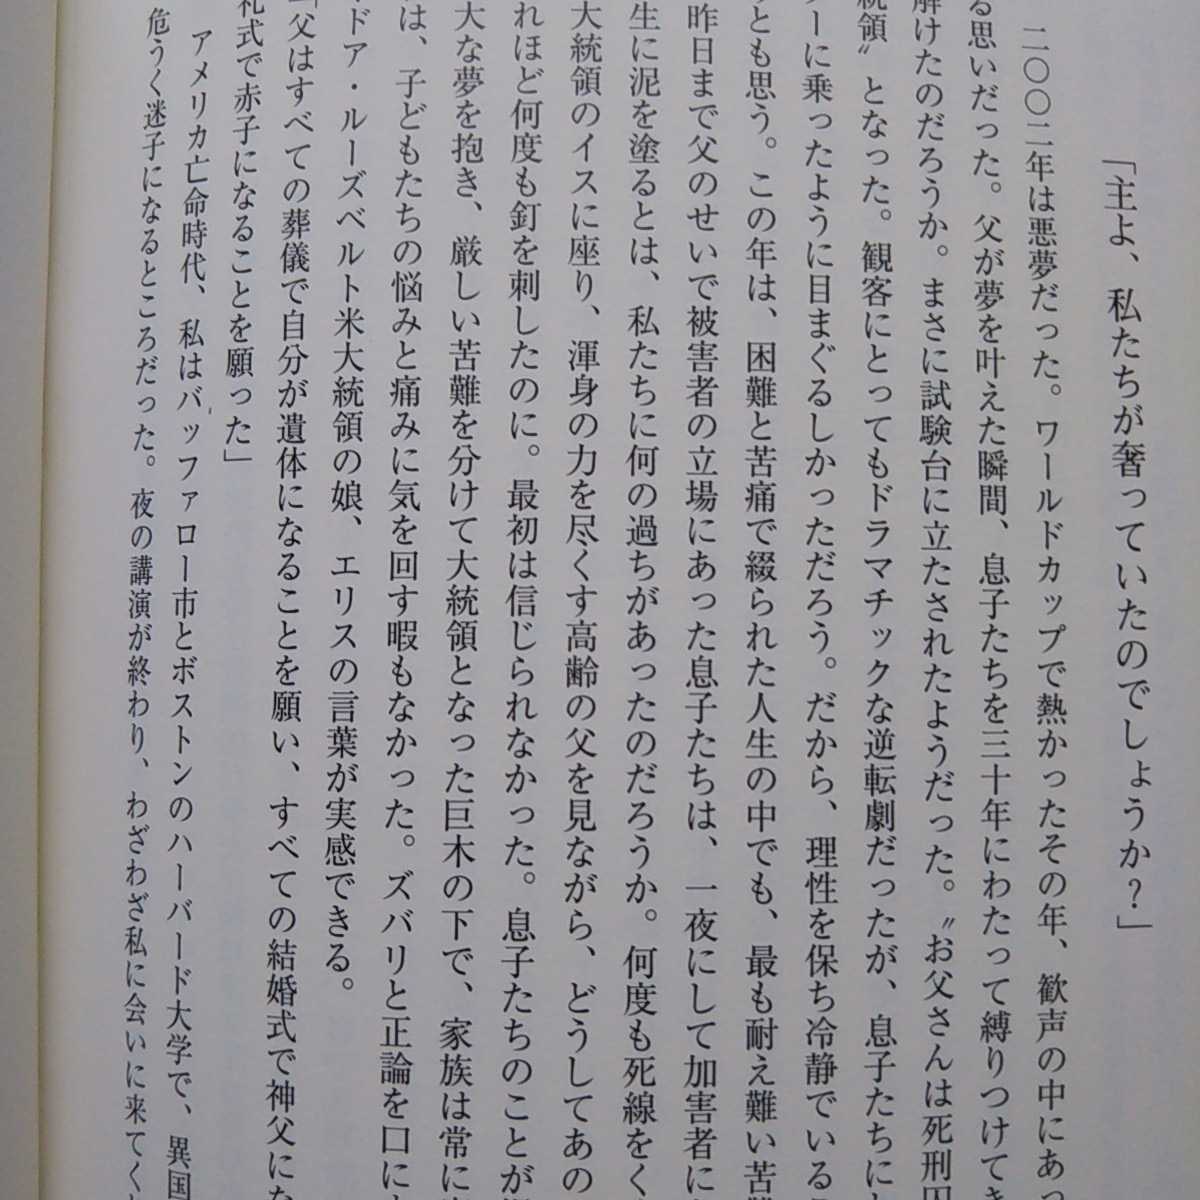 「主よ、私たちが奢っていたのでしょうか？」
二〇〇二年は悪夢だった。ワールドカップで熱かったその年、歓声の中にあっ
る思いだった。父が夢を叶えた瞬間、息子たちを三十年にわたって縛りつけてき
解けたのだろうか。まさに試験台に立たされたようだった。〝お父さんは死刑囚
統領〟となった。観客にとってもドラマチックな逆転劇だったが、息子たちにと
ターに乗ったように目まぐるしかっただろう。だから、理性を保ち冷静でいる
とも思う。この年は、困難と苦痛で綴られた人生の中でも、最も耐え難い苦難
昨日まで父のせいで被害者の立場にあった息子たちは、一夜にして加害者に
生に泥を塗るとは、私たちに何の過ちがあったのだろうか。何度も死線をく
大統領のイスに座り、渾身の力を尽くす高齢の父を見ながら、どうしてあの
れほど何度も釘を刺したのに。最初は信じられなかった。息子たちのことが
大な夢を抱き、厳しい苦難を分けて大統領となった巨木の下で、家族は常に
は、子どもたちの悩みと痛みに気を回す暇もなかった。ズバリと正論を口に
ドア・ルーズベルト米大統領の娘、エリスの言葉が実感できる。
「父はすべての葬儀で自分が遺体になることを願い、すべての結婚式で神父にな
礼式で赤子になることを願った」
アメリカ亡命時代、私はバッファロー市とボストンのハーバード大学で、異国
危うく迷子になるところだった。夜の講演が終わり、わざわざ私に会いに来てく